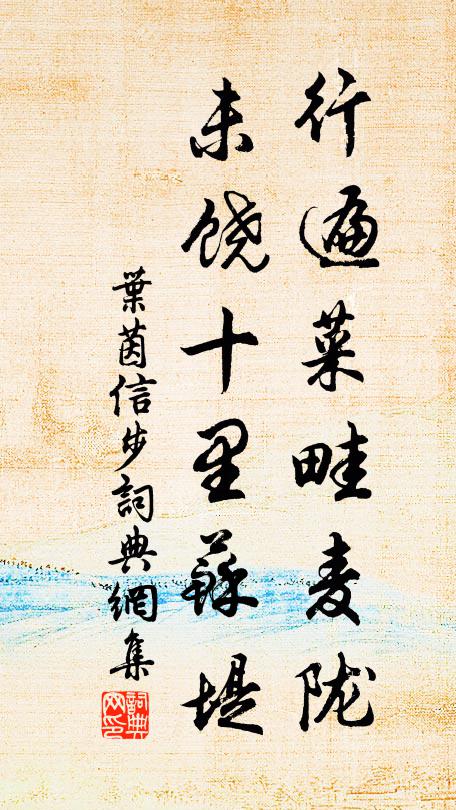 行遍菜畦麦陇
未饶十里苏堤
葉茵信步詞典網集
詞典網印